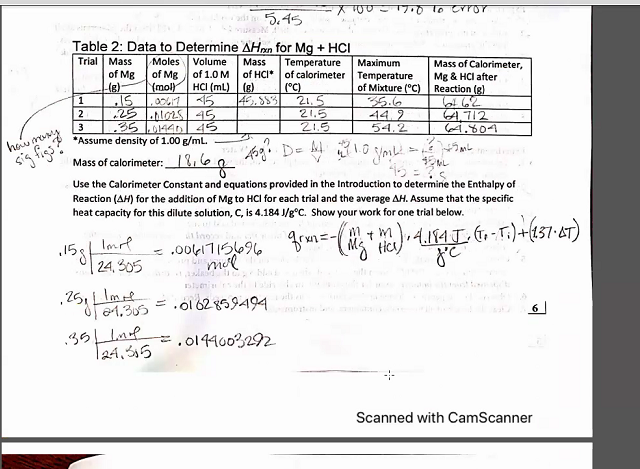 5.45 x 100 = 19.0 % error
Table 2: Data to Determine ΔHrxn for Mg + HCl
Trial | Mass of Mg (g) | Moles of Mg (mol) | Volume of 1.0 M HCl (mL) | Mass of HCl* (g) | Temperature of calorimeter (°C) | Maximum Temperature of Mixture (°C) | Mass of Calorimeter, Mg & HCl after Reaction (g)
1 .15 .00617 45 45.883 21.5 35.6 64.62
2 .25 .01025 45 21.5 44.9 64.712
3 .35 .01440 45 21.5 54.2 64.804
how many sig figs?
*Assume density of 1.00 g/mL.
45g? D = M/V 1.0 g/mL =
Mass of calorimeter: 18.6 g
45 = ?.S
Use the Calorimeter Constant and equations provided in the Introduction to determine the Enthalpy of
Reaction (ΔH) for the addition of Mg to HCl for each trial and the average ΔH. Assume that the specific
heat capacity for this dilute solution, C, is 4.184 J/g°C. Show your work for one trial below.
.15g | 1mol / 24.305 = .0061715696 mol
qrxn = -((m Mg + m HCl) · 4.184 J/g°C · (Tf - Ti) + (137·ΔT)
.25g | 1mol / 24.305 = .0102859494
6
.35 | 1mol / 24.305 = .0144003292
Scanned with CamScanner